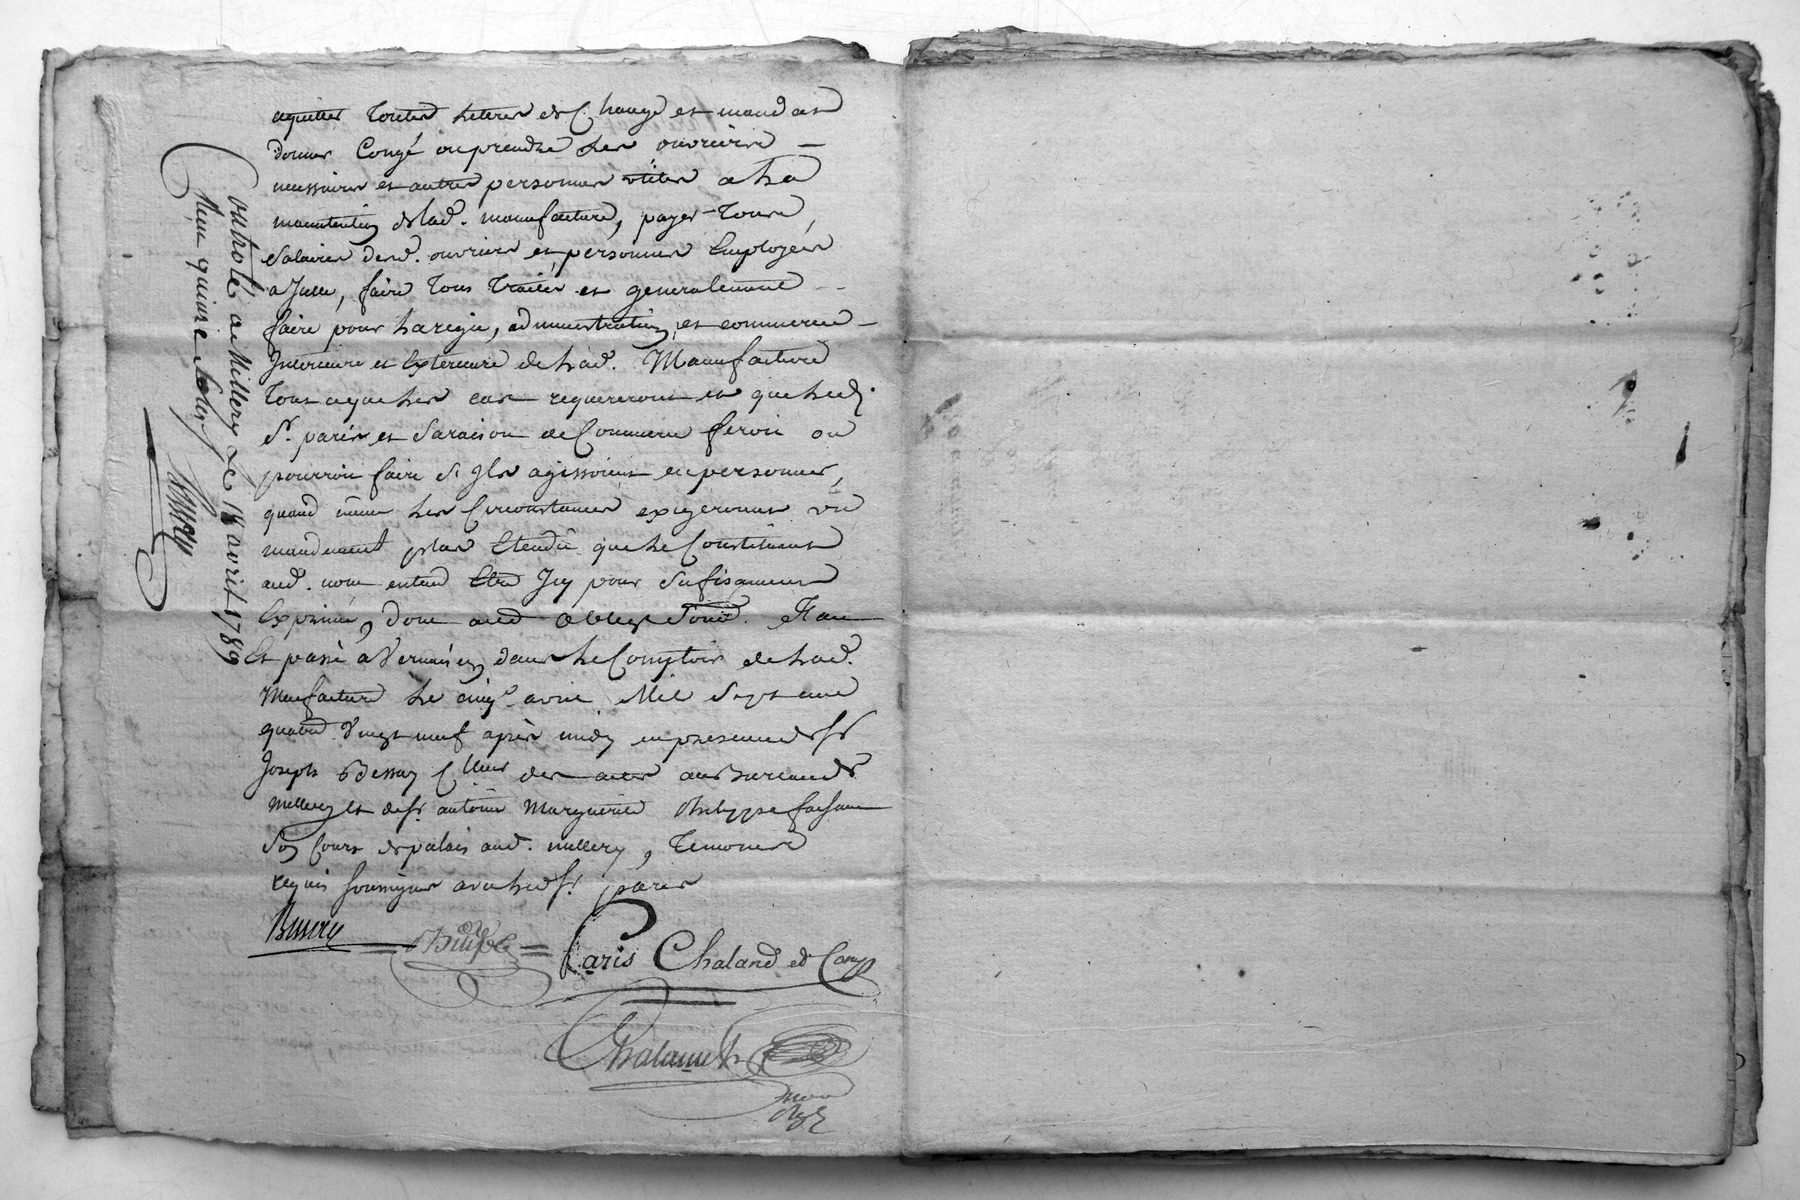 aquitter Toutes Lettres de Change et mandats
donner Congé ou prendre Les ouvriers
necessaires et autres personnes utiles a La
manutention de lad. manufacture, payer Tous
Salaires desd. ouvriers et personnes Employées
a Jcelle, faire Tous Traités et generalement
faire pour La regie, administration, et commerce
Jnterieure et Exterieure de Lad. Manufacture
Tout ce que Les cas requereront et que Led.
Sr. paris et Sa raison de Commerce feroit ou
pourroit faire Si Jls agissoient en personnes,
quand même Les Circonstances exigeroient un
mandement plus Etendu que Le Constituant
aud. nom entend Etre Jcy pour Sufisamment
Exprimé, dont acte oblig. Soum. Fait
Et passé a Vernaison dans Le Comptoir de Lad.
Manufacture Le cinq avril Mil Sept cent
quatre Vingt neuf après midy en presence de Sr
Joseph Bessay Cller des actes au Bureau de
millery Et de Sr. antoine Marguerite Philippe faisant
Son Cours de palais aud. millery, Temoins
requis Soussignes avec Led Sr. paris
Paris Chaland et Comp
Chaland
Controlé a Millery Le 18 avril 1789
Reçu quinze Sols